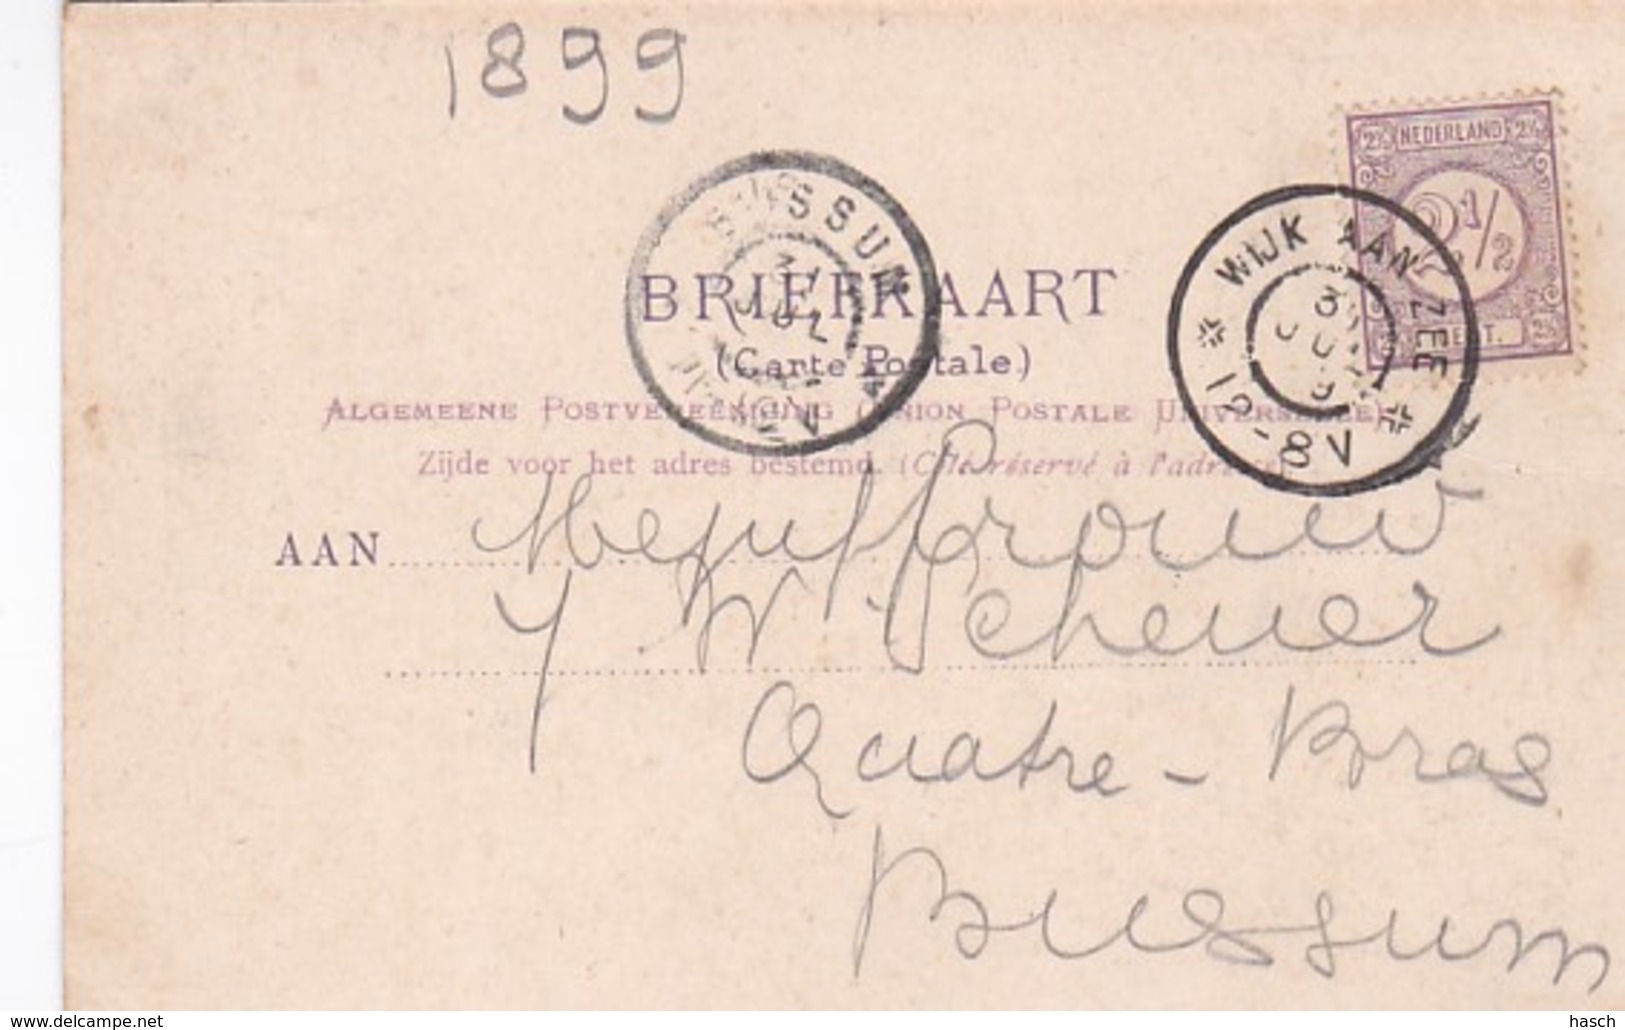 1899
2½ NEDERLAND 2½
2½
CENT. 2½
BUSSUM
31 JUL
WIJK AAN ZEE
JUL
12-8V
BRIEFKAART
(Carte Postale.)
ALGEMEENE POSTVEREENIGING (UNION POSTALE UNIVERSELLE)
Zijde voor het adres bestemd. (Côté réservé à l'adresse)
AAN Mejuffrouw
Scheuer
Quatre-Bras
Bussum
www.delcampe.net
hasch